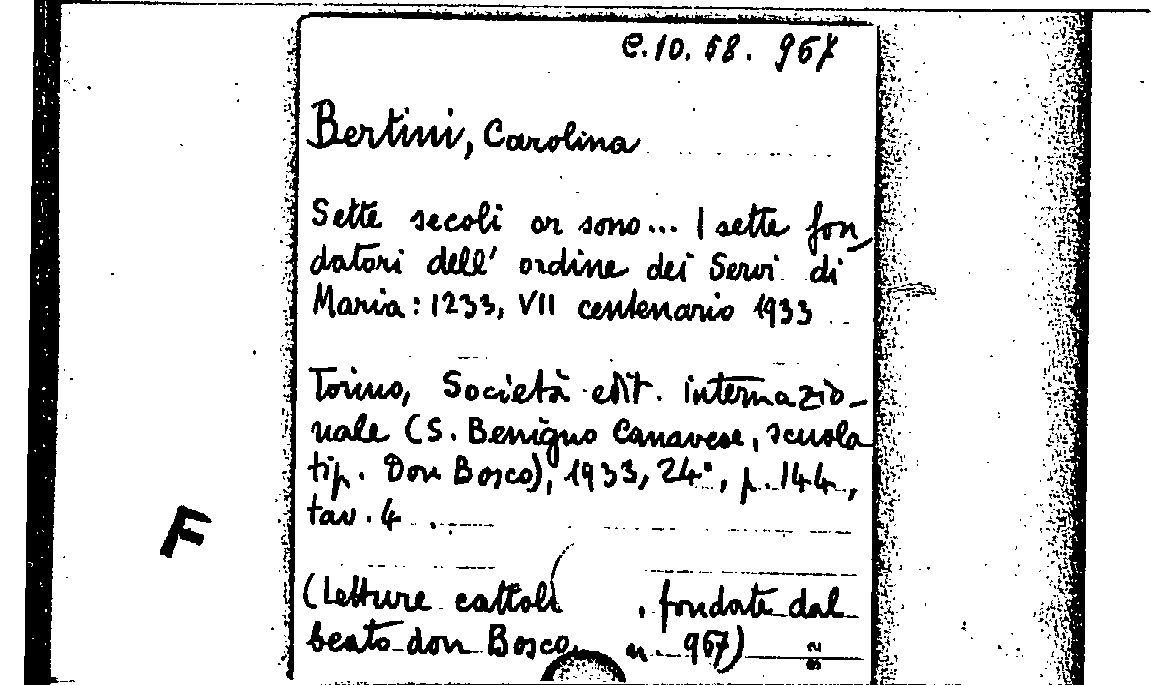 C.10.58.967
Bertini, Carolina
Sette secoli or sono... I sette fon
datori dell' ordine dei Servi di
Maria: 1233, VII centenario 1933
Torino, Società edit. internazio-
nale (S. Benigno Canavese, scuola
tip. Don Bosco), 1933, 24°, p. 144,
tav. 4
(Letture cattoli , fondate dal
beato don Bosco n. 967)
F